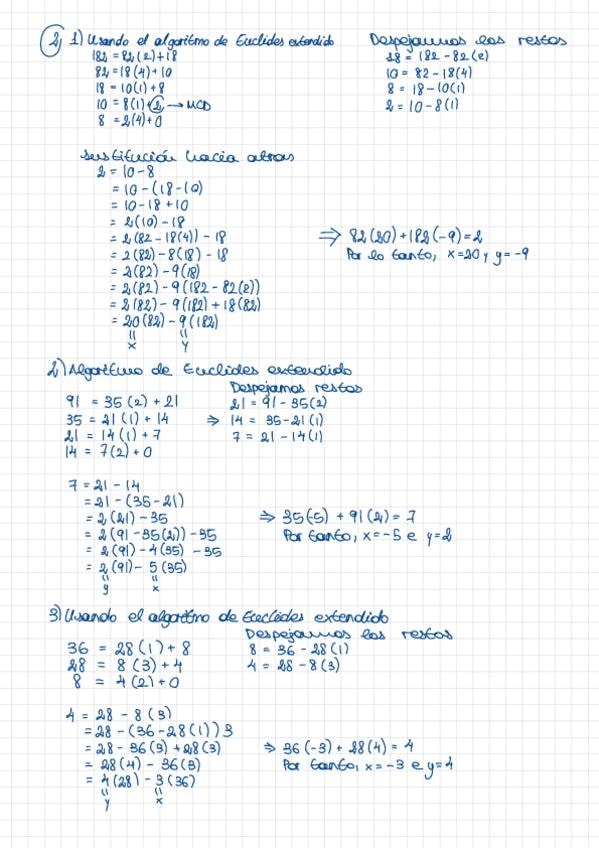 2, 1) Usando el algoritmo de Euclides extendido
182 = 82(2)+18
82 = 18(4)+10
18 = 10(1)+8
10 = 8(1)+2 → MCD
8 = 2(4)+0
Despejamos los restos
18 = 182 - 82(2)
10 = 82 - 18(4)
8 = 18 - 10(1)
2 = 10 - 8(1)
Sustitución hacia atras
2 = 10 - 8
= 10 - (18 - 10)
= 10 - 18 + 10
= 2(10) - 18
= 2(82 - 18(4)) - 18
= 2(82) - 8(18) - 18
= 2(82) - 9(18)
= 2(82) - 9(182 - 82(2))
= 2(82) - 9(182) + 18(82)
= 20(82) - 9(182)
= =
x y
⇒ 82(20) + 182(-9) = 2
Por lo tanto, x=20 y y=-9
2) Algoritmo de Euclides extendido
91 = 35(2) + 21
35 = 21(1) + 14
21 = 14(1) + 7
14 = 7(2) + 0
Despejamos restos
21 = 91 - 35(2)
⇒ 14 = 35 - 21(1)
7 = 21 - 14(1)
7 = 21 - 14
= 21 - (35 - 21)
= 2(21) - 35
= 2(91 - 35(2)) - 35
= 2(91) - 4(35) - 35
= 2(91) - 5(35)
= =
y x
⇒ 35(-5) + 91(2) = 7
Por tanto, x=-5 e y=2
3) Usando el algoritmo de Euclides extendido
36 = 28(1) + 8
28 = 8(3) + 4
8 = 4(2) + 0
Despejamos los restos
8 = 36 - 28(1)
4 = 28 - 8(3)
4 = 28 - 8(3)
= 28 - (36 - 28(1))3
= 28 - 36(3) + 28(3)
= 28(4) - 36(3)
= 4(28) - 3(36)
= =
y x
⇒ 36(-3) + 28(4) = 4
Por tanto, x=-3 e y=4